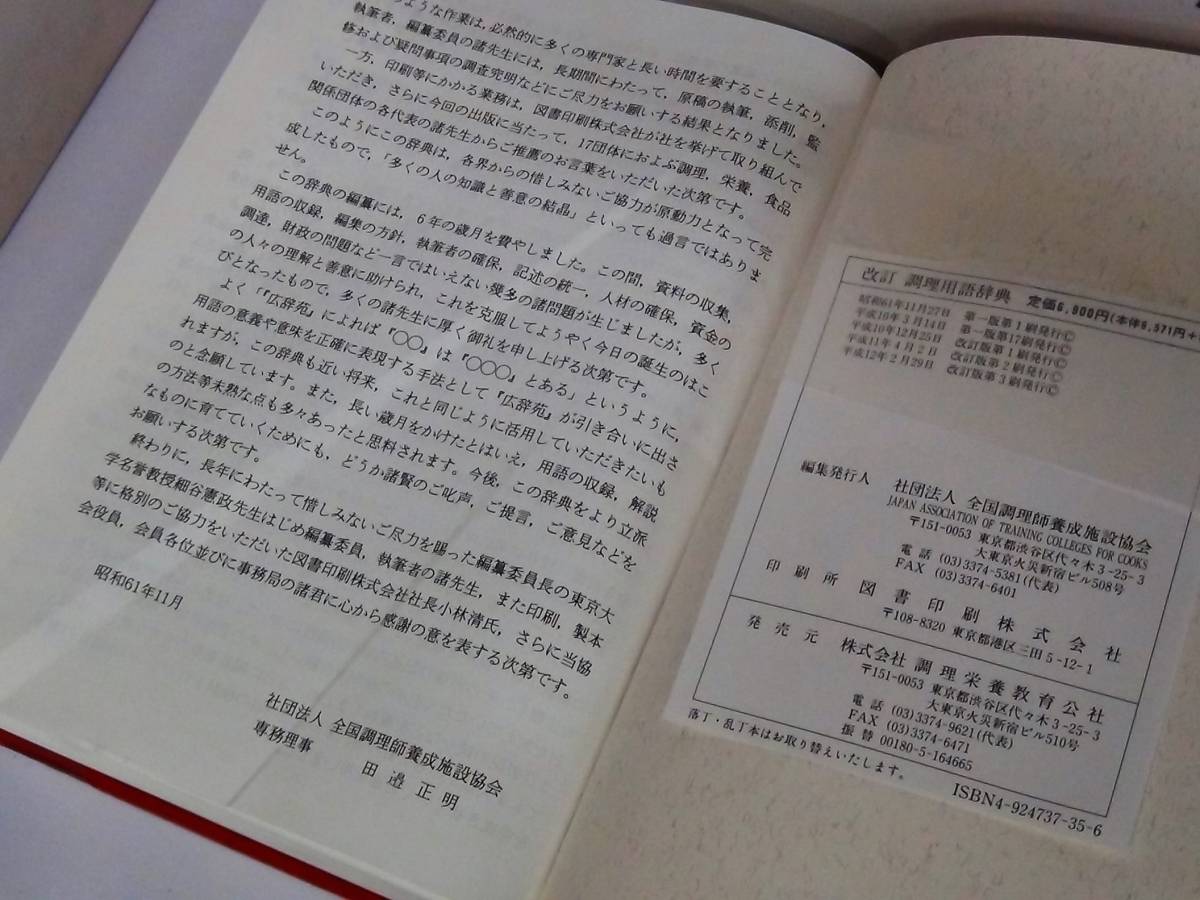 ような作業は，必然的に多くの専門家と長い時間を要することとなり，
執筆者，編纂委員の諸先生には，長期間にわたって，原稿の執筆，添削，監
修および疑問事項の調査究明などにご尽力をお願いする結果となりました。
一方，印刷等にかかる業務は，図書印刷株式会社が社を挙げて取り組んで
いただき，さらに今回の出版に当たって，17団体におよぶ調理，栄養，食品
関係団体の各代表の諸先生からご推薦のお言葉をいただいた次第です。
このようにこの辞典は，各界からの惜しみないご協力が原動力となって完
成したもので，「多くの人の知識と善意の結晶」といっても過言ではありま
せん。
この辞典の編纂には，6年の歳月を費やしました。この間，資料の収集，
用語の収録，編集の方針，執筆者の確保，記述の統一，人材の確保，資金の
調達，財政の問題など一言ではいえない幾多の諸問題が生じましたが，多く
の人々の理解と善意に助けられ，これを克服してようやく今日の誕生のはこ
びとなったもので，多くの諸先生に厚く御礼を申し上げる次第です。
よく「『広辞苑』によれば『〇〇』は『〇〇〇』とある」というように，
用語の意義や意味を正確に表現する手法として『広辞苑』が引き合いに出さ
れますが，この辞典も近い将来，これと同じように活用していただきたいも
のと念願しています。また，長い歳月をかけたとはいえ，用語の収録，解説
の方法等未熟な点も多々あったと思料されます。今後，この辞典をより立派
なものに育てていくためにも，どうか諸賢のご叱声，ご提言，ご意見などを
お願いする次第です。
終わりに，長年にわたって惜しみないご尽力を賜った編纂委員長の東京大
学名誉教授細谷憲政先生はじめ編纂委員，執筆者の諸先生，また印刷，製本
等に格別のご協力をいただいた図書印刷株式会社社長小林清氏，さらに当協
会役員，会員各位並びに事務局の諸君に心から感謝の意を表する次第です。
昭和61年11月
社団法人 全国調理師養成施設協会
専務理事 田邉正明
改訂 調理用語辞典 定価6,900円(本体6,571円+
昭和61年11月27日 第一版第1刷発行Ⓒ
平成10年3月14日 第一版第17刷発行Ⓒ
平成10年12月25日 改訂版第1刷発行Ⓒ
平成11年4月2日 改訂版第2刷発行Ⓒ
平成12年2月29日 改訂版第3刷発行Ⓒ
編集発行人 社団法人 全国調理師養成施設協会
JAPAN ASSOCIATION OF TRAINING COLLEGES FOR COOKS
〒151-0053 東京都渋谷区代々木3-25-3
大東京火災新宿ビル508号
電話 (03)3374-5381(代表)
FAX (03)3374-6401
印刷所 図書印刷株式会社
〒108-8320 東京都港区三田5-12-1
発売元 株式会社 調理栄養教育公社
〒151-0053 東京都渋谷区代々木3-25-3
大東京火災新宿ビル510号
電話 (03)3374-9621(代表)
FAX (03)3374-6471
振替 00180-5-164665
落丁・乱丁本はお取り替えいたします。
ISBN4-924737-35-6